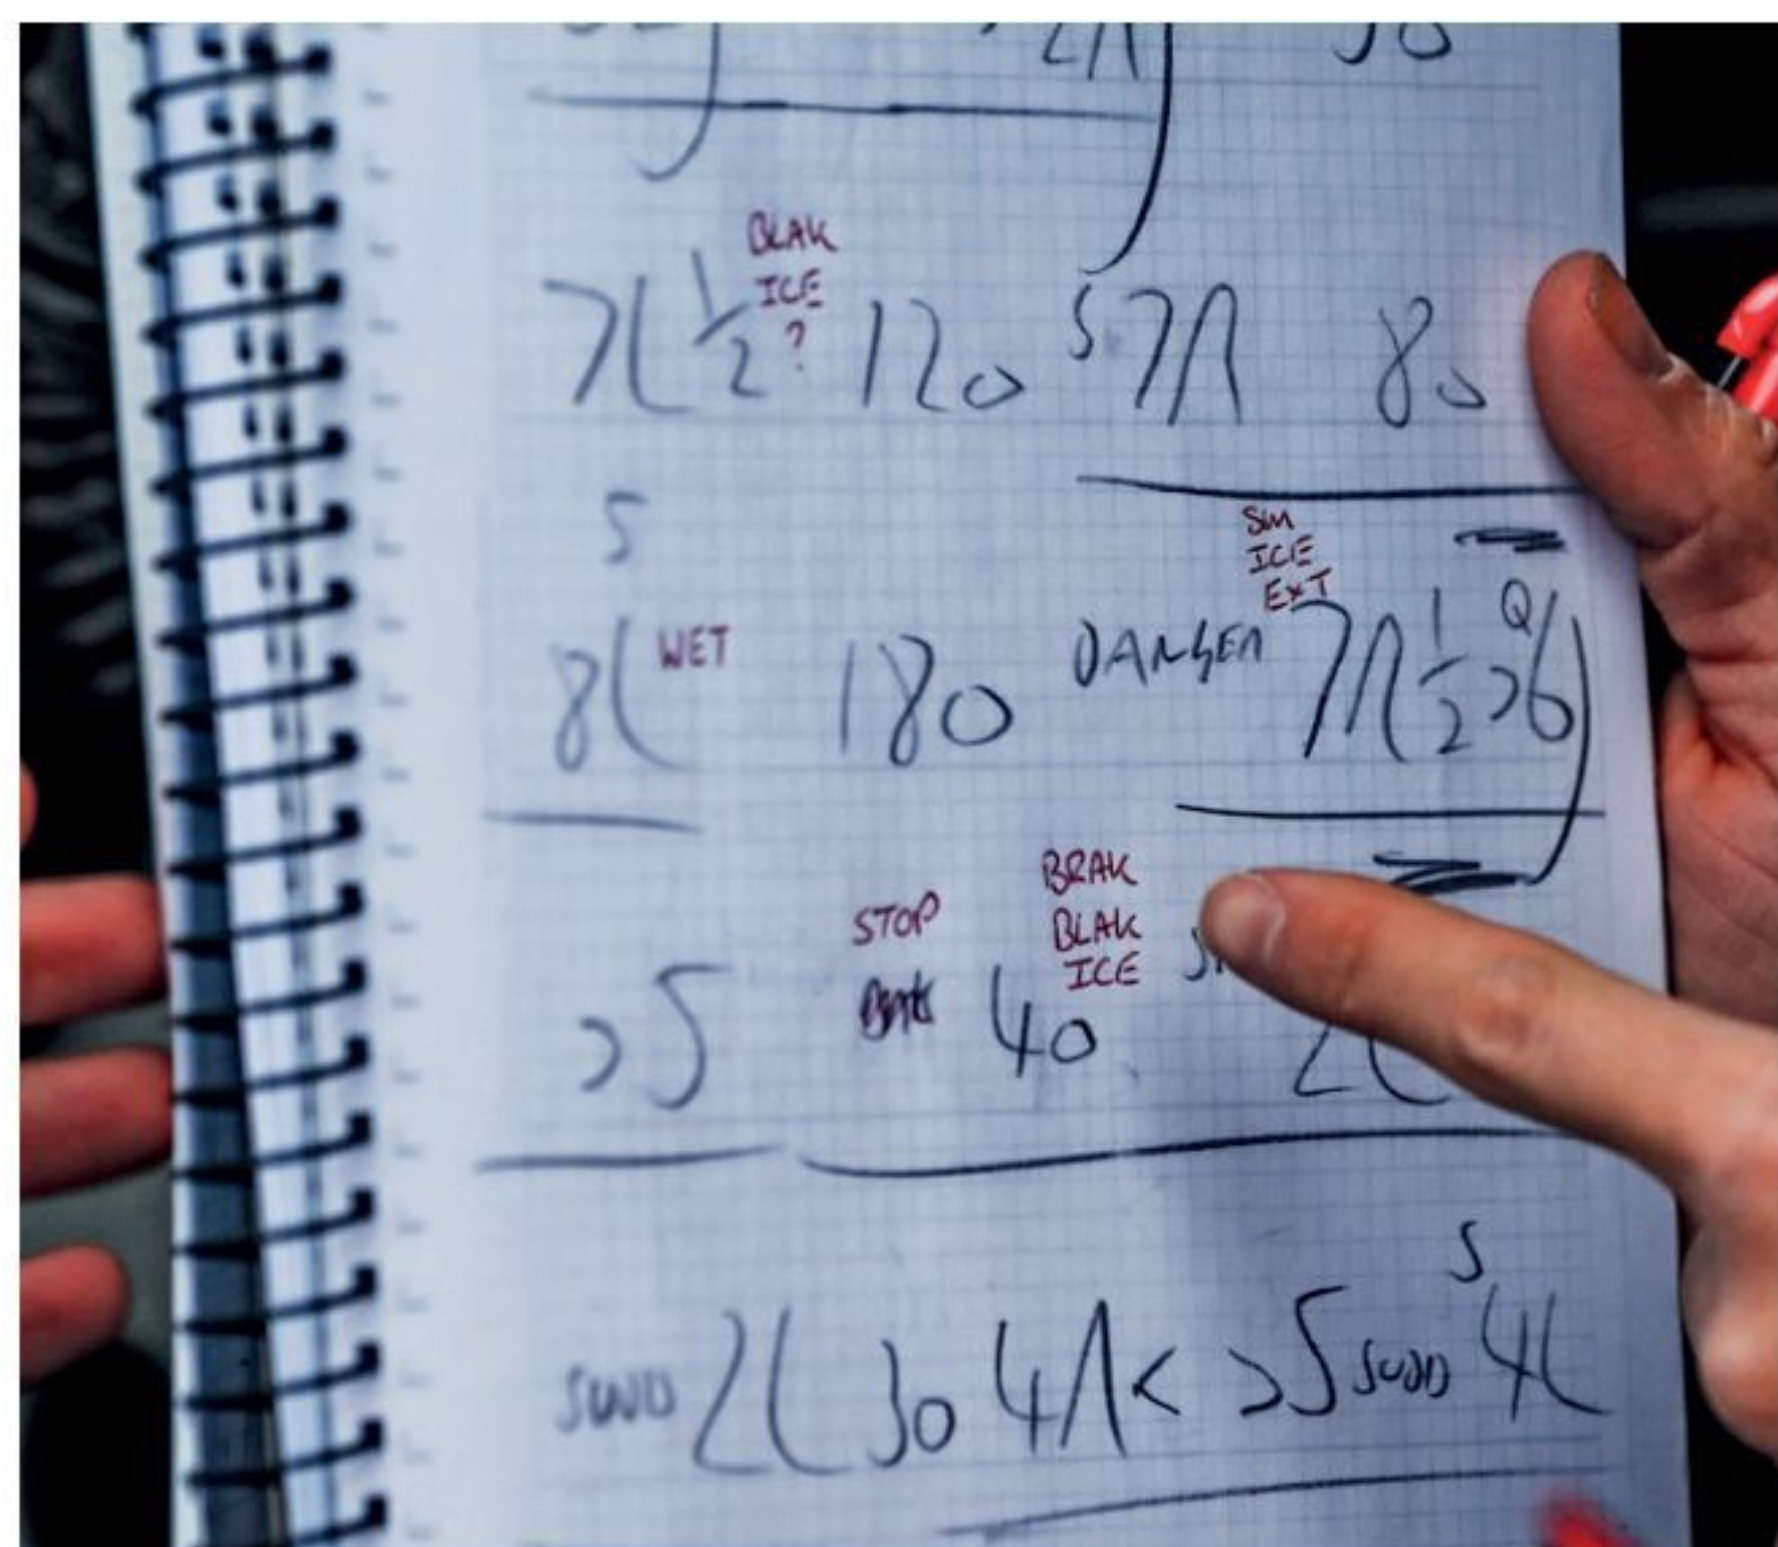 BLAK
ICE
?
7L 1/2 120 S 7R 80
5
SLM
ICE
EXT
8L WET 180 DANGER 7R 1/2 Q >6
BRAK
STOP BLAK
ICE
>5 40 2L
S
SUDD 2L 30 4R < >5 SUDD 4L